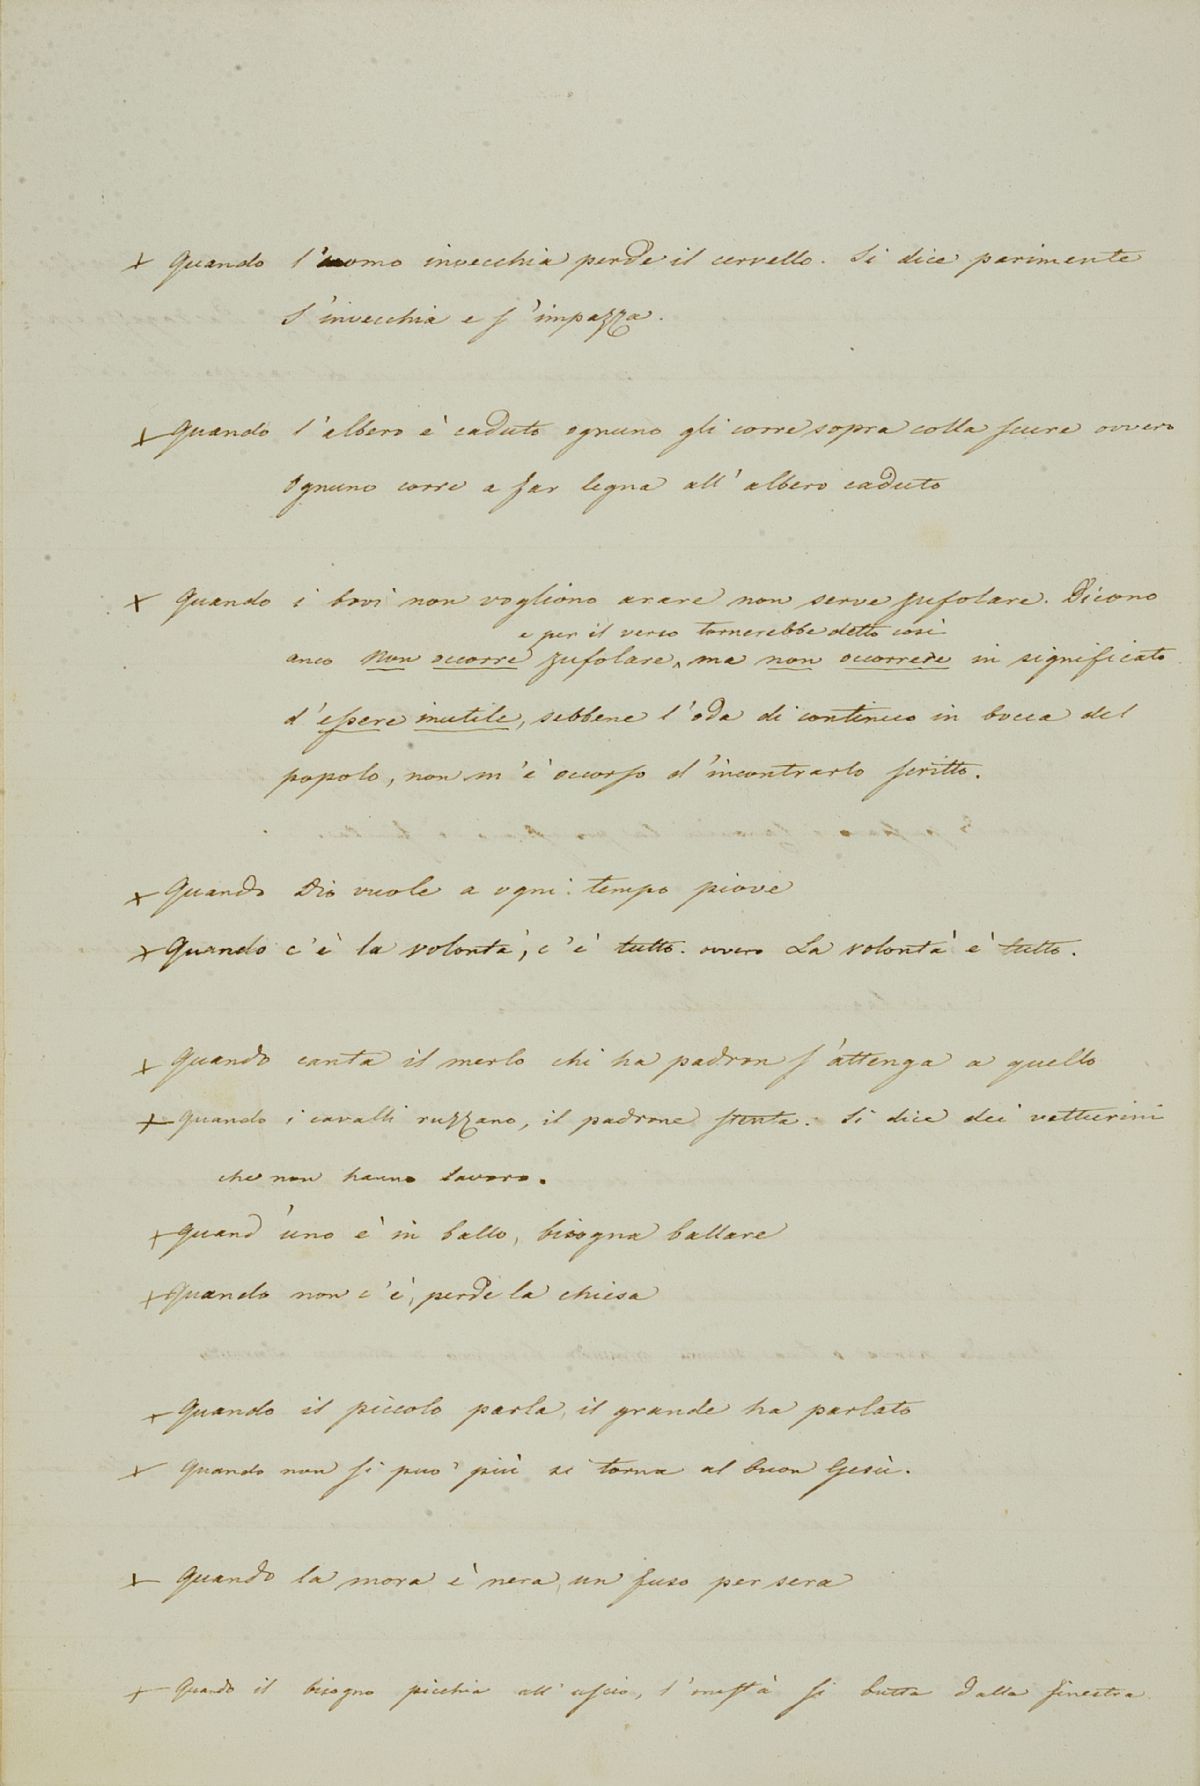 + Quando l'uomo invecchia perde il cervello. Si dice parimente
S'invecchia e s'impazza.
+ Quando l'albero è caduto ognuno gli corre sopra colla scure ovvero
Ognuno corre a far legna all'albero caduto
+ Quando i bovi non vogliono arare non serve zufolare. Dicono
e per il verso tornerebbe detto così
anco Non occorre zufolare, ma non occorrere in significato
d'essere inutile, sebbene l'oda di continuo in bocca del
popolo, non m'è occorso d'incontrarlo scritto.
+ Quando Dio vuole a ogni tempo piove
+ Quando c'è la volontà, c'è tutto. ovvero La volontà è tutto.
+ Quando canta il merlo chi ha padron s'attenga a quello
+ Quando i cavalli ruzzano, il padrone stenta. Si dice dei vetturini
che non hanno lavoro.
+ Quand'uno è in ballo, bisogna ballare
+ Quando non c'è, perde la chiesa
+ Quando il piccolo parla, il grande ha parlato
+ Quando non si può più si torna al buon Gesù.
+ Quando la mora è nera, un fuso per sera
+ Quando il bisogno picchia all'uscio, l'onestà si butta dalla finestra